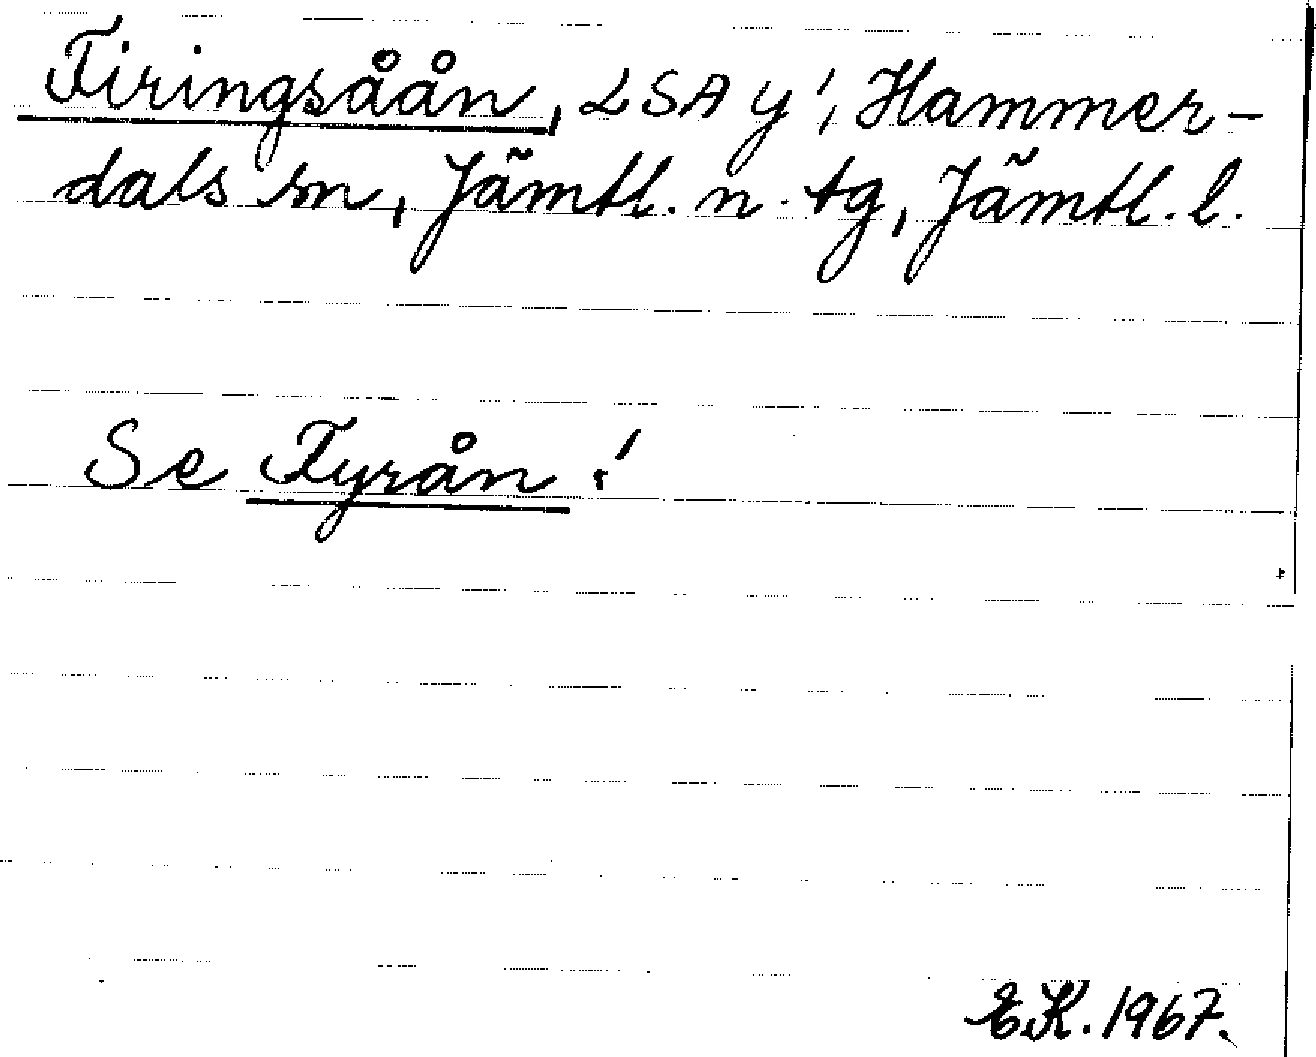 Fyringsåån, LSA y', Hammer-
dals sn, Jämtl. n. tg, Jämtl. l.
Se Fyrån!
E.K. 1967.